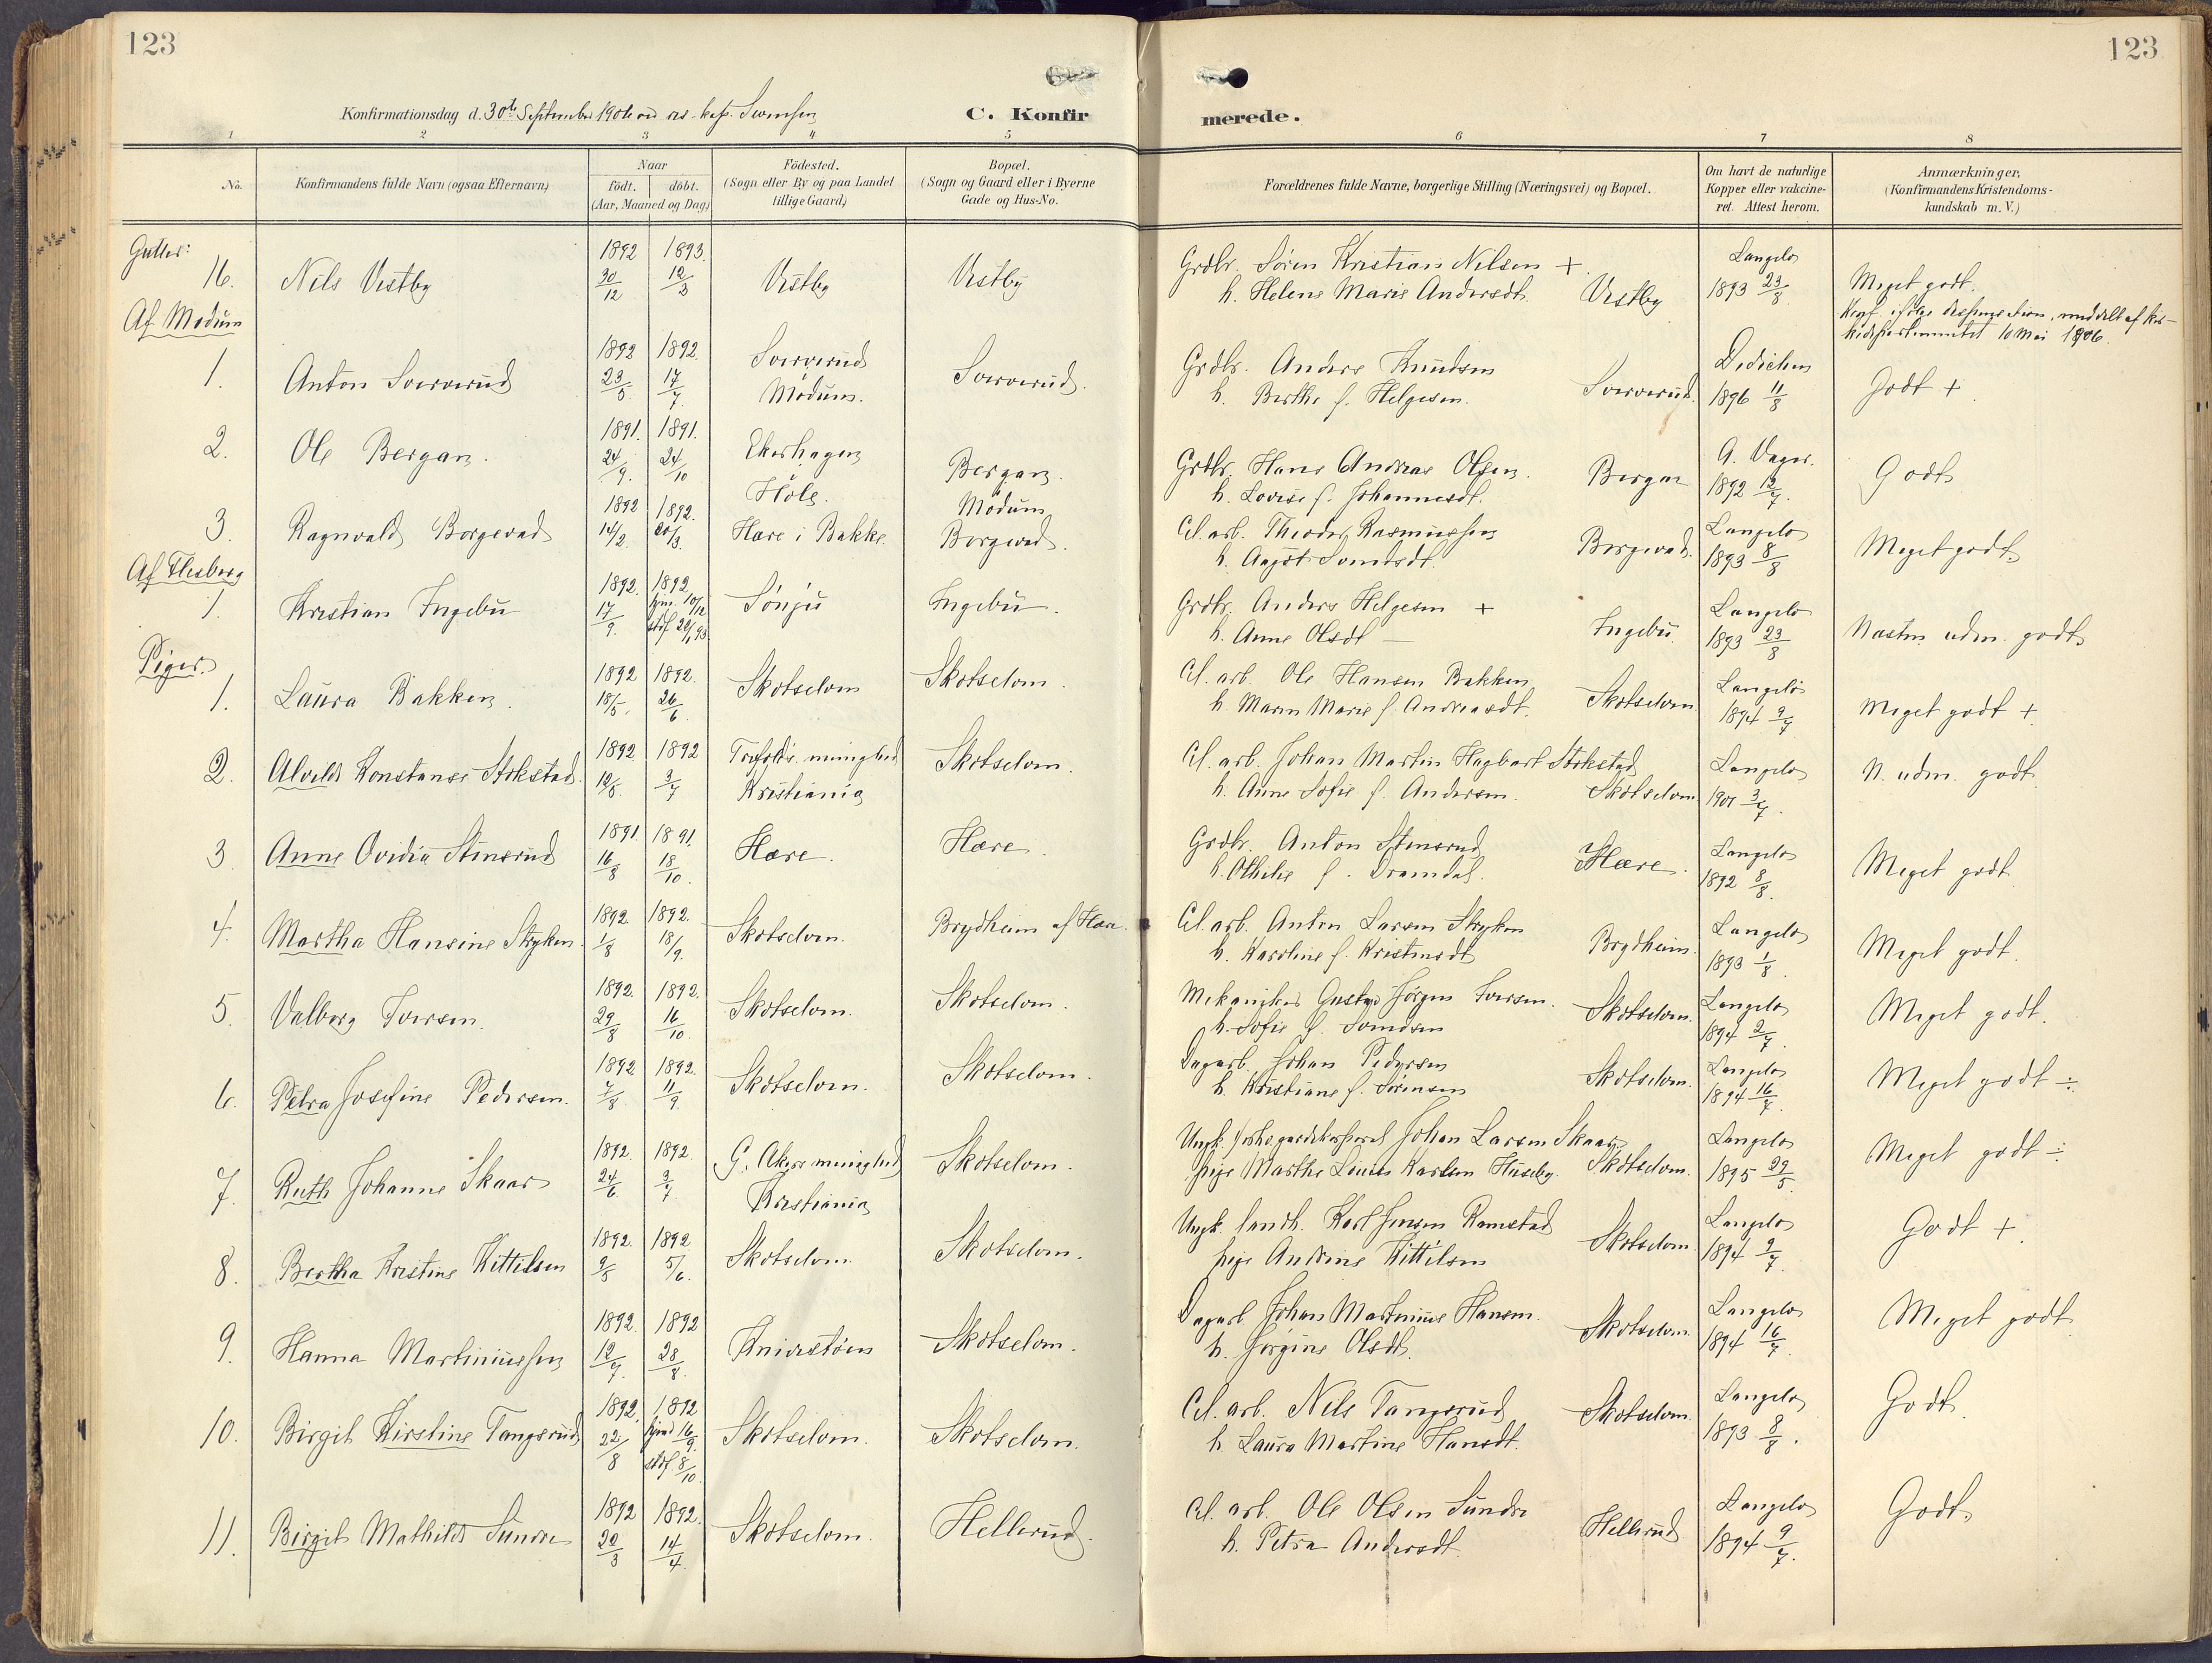 123
123
Konfirmationsdag d. 30te September 1906 ved res. kap.
C. Konfirmerede.
1 2 3 4 5 6 7 8
No.
Konfirmandens fulde Navn (ogsaa Efternavn)
Naar
födt. döbt.
(Aar, Maaned og Dag)
Födested.
(Sogn eller By og paa Landet
tillige Gaard)
Bopæl.
(Sogn og Gaard eller i Byerne
Gade og Hus-No.
Forældrenes fulde Navne, borgerlige Stilling (Næringsvei) og Bopæl.
Om havt de naturlige
Kopper eller vakcine-
ret. Attest herom.
Anmærkninger.
(Konfirmandens Kristendoms-
kundskab m. V.)
Gutter:
16. Nils Vestby 1892 30/12 1893 12/3 Vestby Vestby Grdbr. Søren Kristian Nilsen + h. Helene Marie Andersdt. Vestby Langelo 1893 23/8 Meget godt.
Konf. ifølge dispensation, meddelt af Kir-
kedepartementet 10 Mai 1906.
Af Modum
1. Anton Sørverud 1892 23/5 1892 17/7 Sørverud Modum. Sørverud. Grdbr. Anders Knudsen h. Berthe f. Helgesen. Sørverud. Didichen 1896 11/8 Godt +
2. Ole Bergan. 1891. 24/9. 1891. 24/10 Ekerhagen Bergan. Modum Grdbr. Hans Andreas Olsen. h. Lovise f. Johannesdt. Bergan 1892 12/7. Godt
3. Ragnvald Borgevad 1892 14/2. 1892. 20/3. Hære i Bakke Borgevad. Cel. arb. Theodor Rasmussen h. Borgevad. Langelo 1893 8/8 Meget godt
Af Flesberg
1. Kristian Ingebu 1892. 17/9. 1892 hjm. 10/12 stdf 22/1 93 Sønju Ingebu. Grdbr. Anders Helgesen + h. Anne Olsdt — Ingebu Langelo 1893 23/8 Næsten udm. godt
Piger.
1. Laura Bakken. 1892 18/5. 1892. 26/6. Skotselven Skotselven. Cel. arb. Ole Hansen Bakken h. Maren Marie f. Andreasdt. Skotselven Langelo 1894 9/7 Meget godt +
2. Alvilde Konstanse Stokstad 1892 12/5. 1892 3/7 Trefold. menighed Kristiania Skotselven. Cel. arb. Johan Martin Hagbart Stokstad h. Anne Sofie f. Andersen. Skotselven Langelo 1901 3/7. N. udm. godt
3. Anne Ovidia Stensrud 1891 16/8 1891. 18/10. Hære. Hære. Grdbr. Anton Stensrud h. Othilie f. Dramdal. Hære. Langelo 1892 8/8. Meget godt
4. Martha Hansine Stryken. 1892. 1/8 1892. 18/9. Skotselven. Brydheim af Hære. Cel. arb. Anton Larsen Stryken h. Karoline f. Kristensdt Brydheim. Langelo 1893 1/8. Meget godt.
5. Valborg Iversen. 1892. 29/8 1892. 16/10. Skotselven. Skotselven. Mekaniker Gustav Jørgen Iversen. h. Sofie f. Svendsen Skotselven. Langelo 1894 2/7. Meget godt.
6. Petra Josefine Pedersen. 1892 7/8 1892. 11/9. Skotselven. Skotselven. Dagarb. Johan Pedersen h. Kristiane f. Sørensen Skotselven. Langelo 1894 16/7. Meget godt ÷
7. Ruth Johanne Skaar 1892. 24/6. 1892. 3/7 G. Akers menighed Kristiania Skotselven. Ungk. Johan Larsen Skaar pige Marthe Louise Karlsen Huseby. Skotselven. Langelo 1895 29/5. Meget godt ÷
8. Bertha Kristine Kittilsen 1892. 9/5 1892 5/6. Skotselven. Skotselven. Ungk. landh. Karl Jensen Ramstad pige Andrine Kittilsen Skotselven. Langelo 1894 9/7. Godt +
9. Hanna Martiniussen 1892. 12/7. 1892 28/8. Kniveståen Skotselven. Dagarb Johan Martinius Hansen. h. Jørgine Olsdt. Skotselven. Langelo 1894 16/7. Meget godt
10. Birgit Kirstine Tangerud 1892. 22/8 1892 hjmd 16/9. stdf. 8/10. Skotselven. Skotselven. Cel. arb. Nils Tangerud h. Laura Martine Hansdt. Skotselven. Langelo 1893 8/8. Godt.
11. Birgit Mathilde Sundre 1892 22/3 1892. 14/4. Skotselven. Hellerud. Cel. arb. Ole Olsen Sundre h. Petra Andersdt. Hellerud Langelo 1894 9/7. Godt.